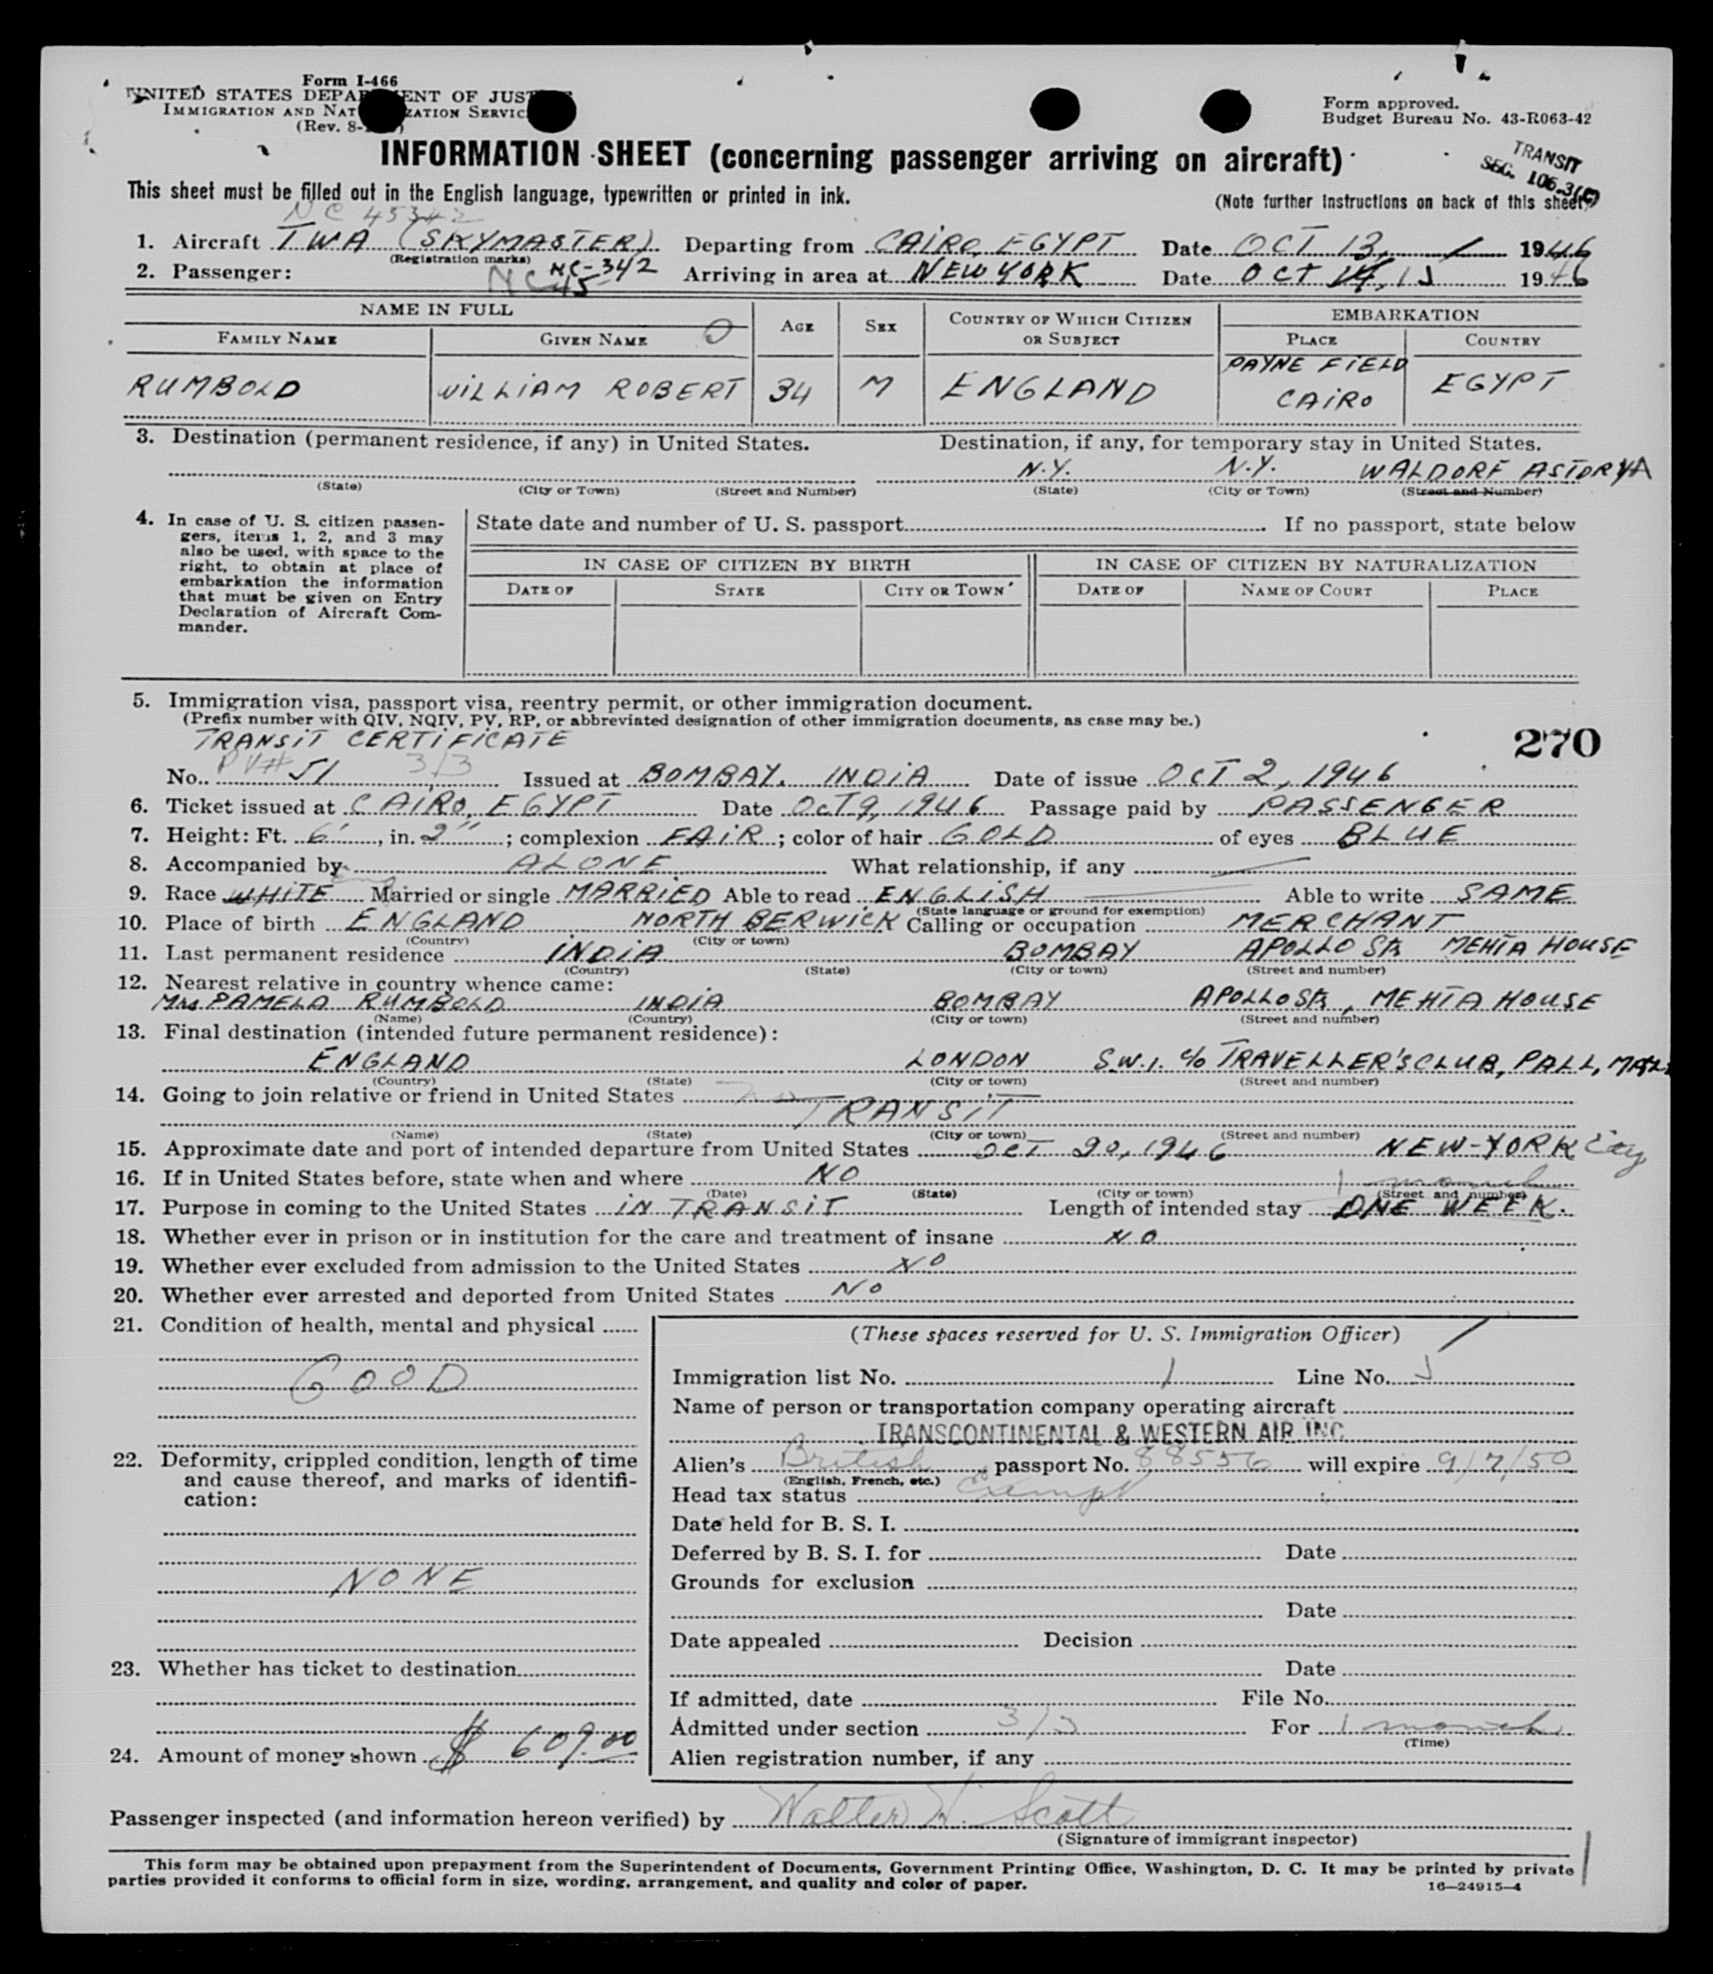 Form I-466
UNITED STATES DEPARTMENT OF JUSTICE
IMMIGRATION AND NATURALIZATION SERVICE
(Rev. 8-
Form approved.
Budget Bureau No. 43-R063-42
INFORMATION SHEET (concerning passenger arriving on aircraft)
TRANSIT
SEC. 106.3(C)
This sheet must be filled out in the English language, typewritten or printed in ink.
(Note further instructions on back of this sheet)
NC 45342
1. Aircraft TWA (SKYMASTER) Departing from CAIRO, EGYPT Date OCT 13, 1946
(Registration marks)
2. Passenger: NC 45 NC-342 Arriving in area at NEW YORK Date OCT 14, 15 1946
NAME IN FULL
FAMILY NAME GIVEN NAME AGE SEX COUNTRY OF WHICH CITIZEN OR SUBJECT EMBARKATION PLACE COUNTRY
RUMBOLD WILLIAM ROBERT 34 M ENGLAND PAYNE FIELD CAIRO EGYPT
3. Destination (permanent residence, if any) in United States. Destination, if any, for temporary stay in United States.
N.Y. N.Y. WALDORF ASTORYA
(State) (City or Town) (Street and Number) (State) (City or Town) (Street and Number)
4. In case of U. S. citizen passengers, items 1, 2, and 3 may also be used, with space to the right, to obtain at place of embarkation the information that must be given on Entry Declaration of Aircraft Commander.
State date and number of U. S. passport If no passport, state below
IN CASE OF CITIZEN BY BIRTH IN CASE OF CITIZEN BY NATURALIZATION
DATE OF STATE CITY OR TOWN DATE OF NAME OF COURT PLACE
5. Immigration visa, passport visa, reentry permit, or other immigration document.
(Prefix number with QIV, NQIV, PV, RP, or abbreviated designation of other immigration documents, as case may be.)
270
TRANSIT CERTIFICATE
No. PV# 51 3/3 Issued at BOMBAY, INDIA Date of issue OCT 2, 1946
6. Ticket issued at CAIRO, EGYPT Date OCT 9, 1946 Passage paid by PASSENGER
7. Height: Ft. 6', in. 2"; complexion FAIR; color of hair GOLD of eyes BLUE
8. Accompanied by ALONE What relationship, if any
9. Race WHITE Married or single MARRIED Able to read ENGLISH Able to write SAME
(State language or ground for exemption)
10. Place of birth ENGLAND NORTH BERWICK Calling or occupation MERCHANT
(Country) (City or town)
11. Last permanent residence INDIA BOMBAY APOLLO STR MEHTA HOUSE
(Country) (State) (City or town) (Street and number)
12. Nearest relative in country whence came:
Mrs PAMELA RUMBOLD INDIA BOMBAY APOLLO STR, MEHTA HOUSE
(Name) (Country) (City or town) (Street and number)
13. Final destination (intended future permanent residence):
ENGLAND LONDON S.W.1. c/o TRAVELLER'S CLUB, PALL, MALL
(Country) (State) (City or town) (Street and number)
14. Going to join relative or friend in United States
TRANSIT
(Name) (State) (City or town) (Street and number)
15. Approximate date and port of intended departure from United States OCT 20, 1946 NEW-YORK City
16. If in United States before, state when and where NO
(Date) (State) (City or town) (Street and number)
1 month
17. Purpose in coming to the United States IN TRANSIT Length of intended stay ONE WEEK.
18. Whether ever in prison or in institution for the care and treatment of insane NO
19. Whether ever excluded from admission to the United States NO
20. Whether ever arrested and deported from United States NO
21. Condition of health, mental and physical
GOOD
22. Deformity, crippled condition, length of time and cause thereof, and marks of identification:
NONE
23. Whether has ticket to destination
24. Amount of money shown $ 609.00
(These spaces reserved for U. S. Immigration Officer)
Immigration list No. 1 Line No. 5
Name of person or transportation company operating aircraft
TRANSCONTINENTAL & WESTERN AIR INC
Alien's British passport No. 88556 will expire 9/7/50
(English, French, etc.)
Head tax status Exempt
Date held for B. S. I.
Deferred by B. S. I. for Date
Grounds for exclusion
Date
Date appealed Decision
Date
If admitted, date File No.
Admitted under section 3/3 For 1 month
(Time)
Alien registration number, if any
Passenger inspected (and information hereon verified) by Walter H. Scott
(Signature of immigrant inspector)
This form may be obtained upon prepayment from the Superintendent of Documents, Government Printing Office, Washington, D. C. It may be printed by private
parties provided it conforms to official form in size, wording, arrangement, and quality and color of paper.
16—24915-4